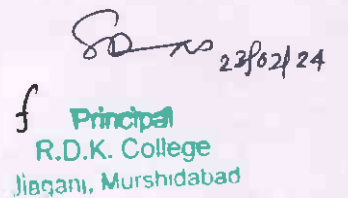 23/02/24
Principal
R.D.K. College
Jiaganj, Murshidabad